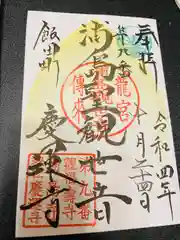 奉拝
第九番
令和四年
十月二十四日
龍宮
傳来
浦島聖観世音
飯田町
慶運寺
第九番
慶運寺